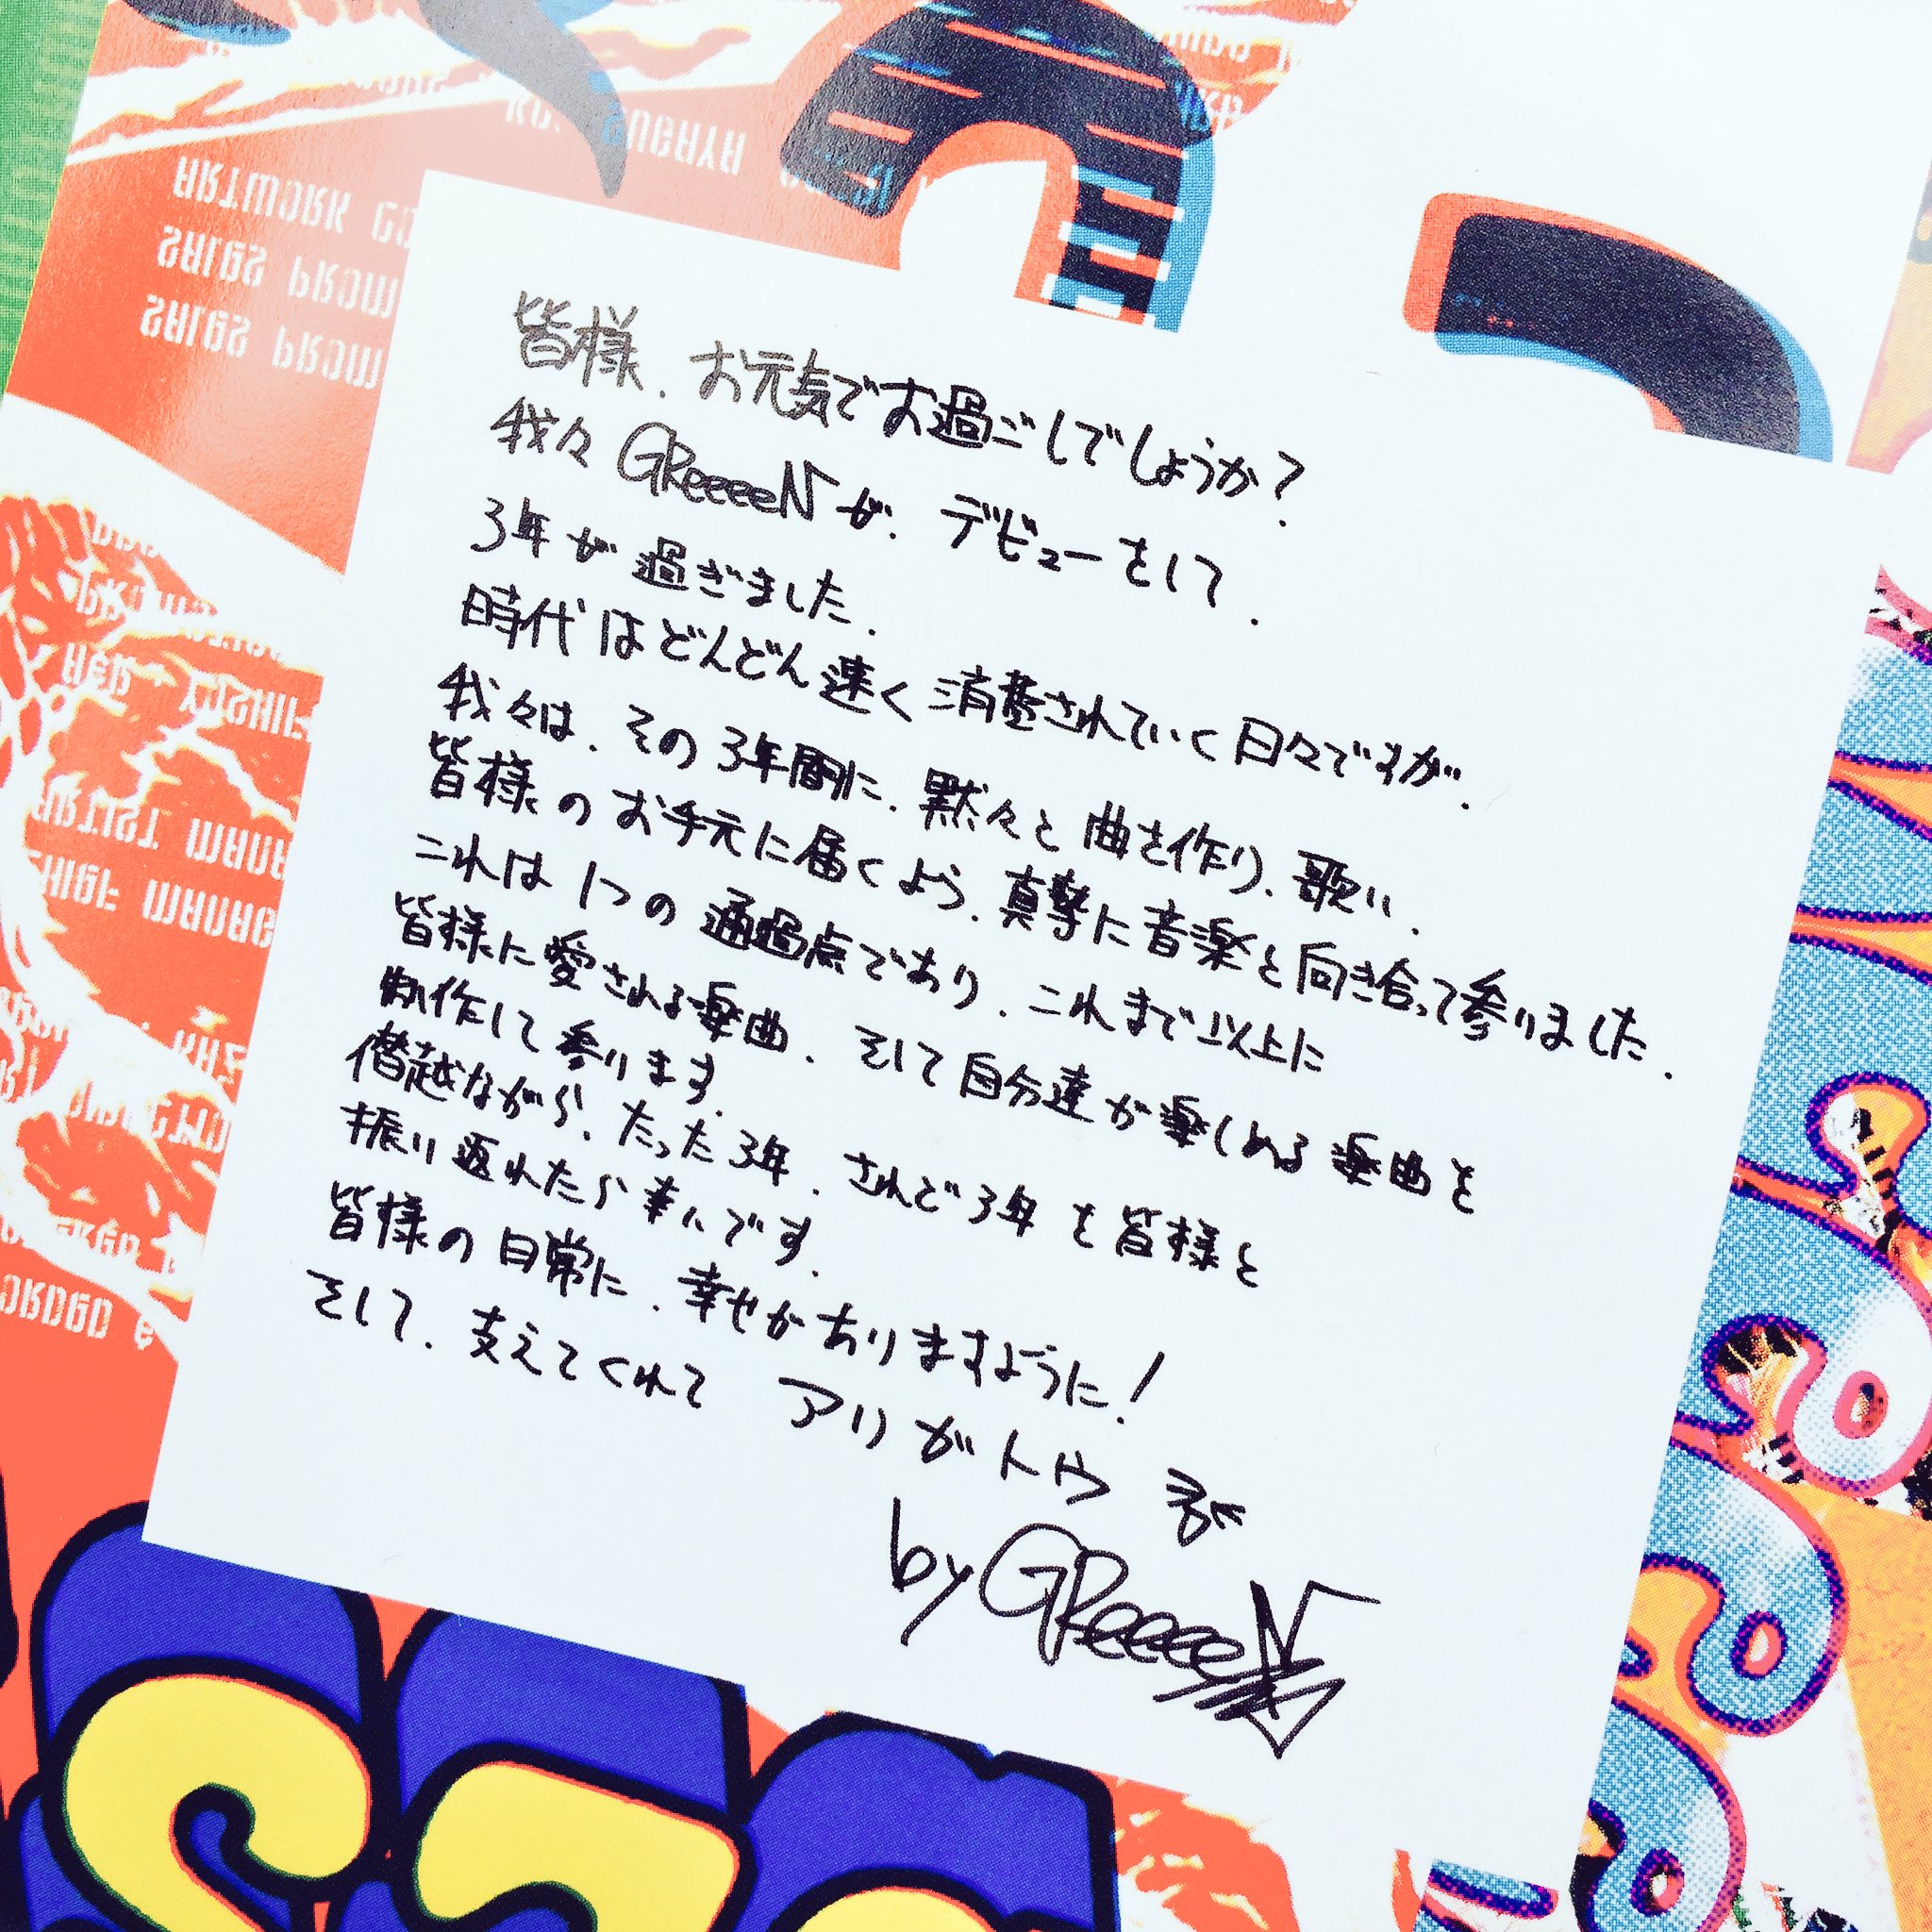 皆様、お元気でお過ごしでしょうか?
我々GReeeeNが、デビューをして、
3年が過ぎました。
時代はどんどん速く消費されていく日々ですが、
我々は、その3年間に、黙々と曲を作り、歌い、
皆様のお手元に届くよう、真摯に音楽と向き合って参りました。
これは1つの通過点であり、これまで以上に
皆様に愛される楽曲、そして自分達が楽しめる楽曲を
制作して参ります。
僭越ながら、たった3年、されど3年を皆様と
振り返れたら幸いです。
皆様の日常に、幸せがありますように!
そして、支えてくれて アリがトウ
by GReeeeN
ARTWORK
SALES PROM
SALES PROM
ARTIST MANA
CHIEF MANAG